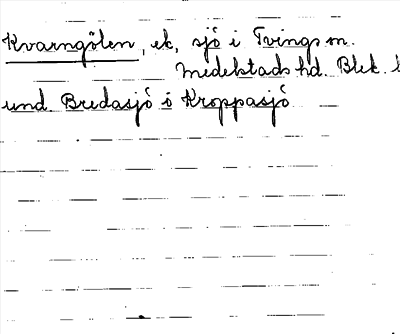 Kvarngölen, ek, sjö i Tvings sn.
Medelstads hd. Blek. l
und. Bredasjö o Kroppasjö